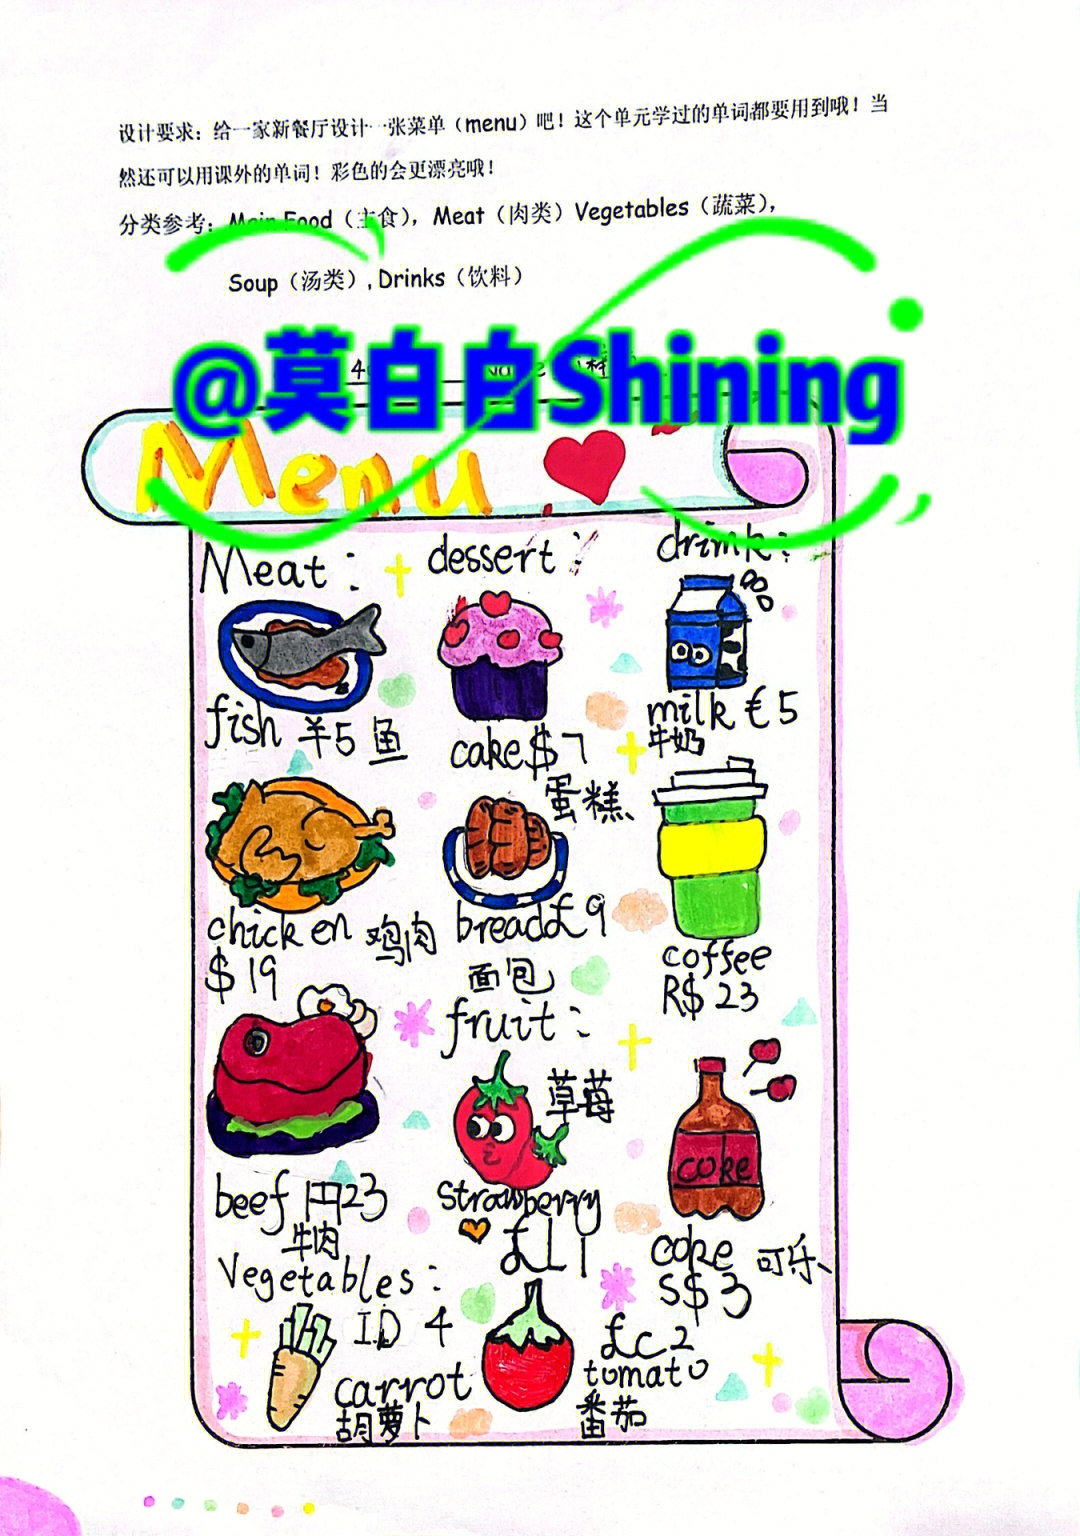 设计要求：给一家新餐厅设计一张菜单（menu）吧！这个单元学过的单词都要用到哦！当
然还可以用课外的单词！彩色的会更漂亮哦！
分类参考：Main Food（主食），Meat（肉类）Vegetables（蔬菜），
Soup（汤类）,Drinks（饮料）
@莫白白Shining
Menu
Meat:
dessert:
drink:
fish 羊5 鱼
cake $7
蛋糕
milk €5
牛奶
chicken 鸡肉
$19
bread £9
面包
coffee
R$ 23
fruit:
草莓
strawberry
£11
coke
beef 円23
牛肉
coke 可乐
S$ 3
Vegetables:
ID 4
carrot
胡萝卜
£c 2
tomato
番茄